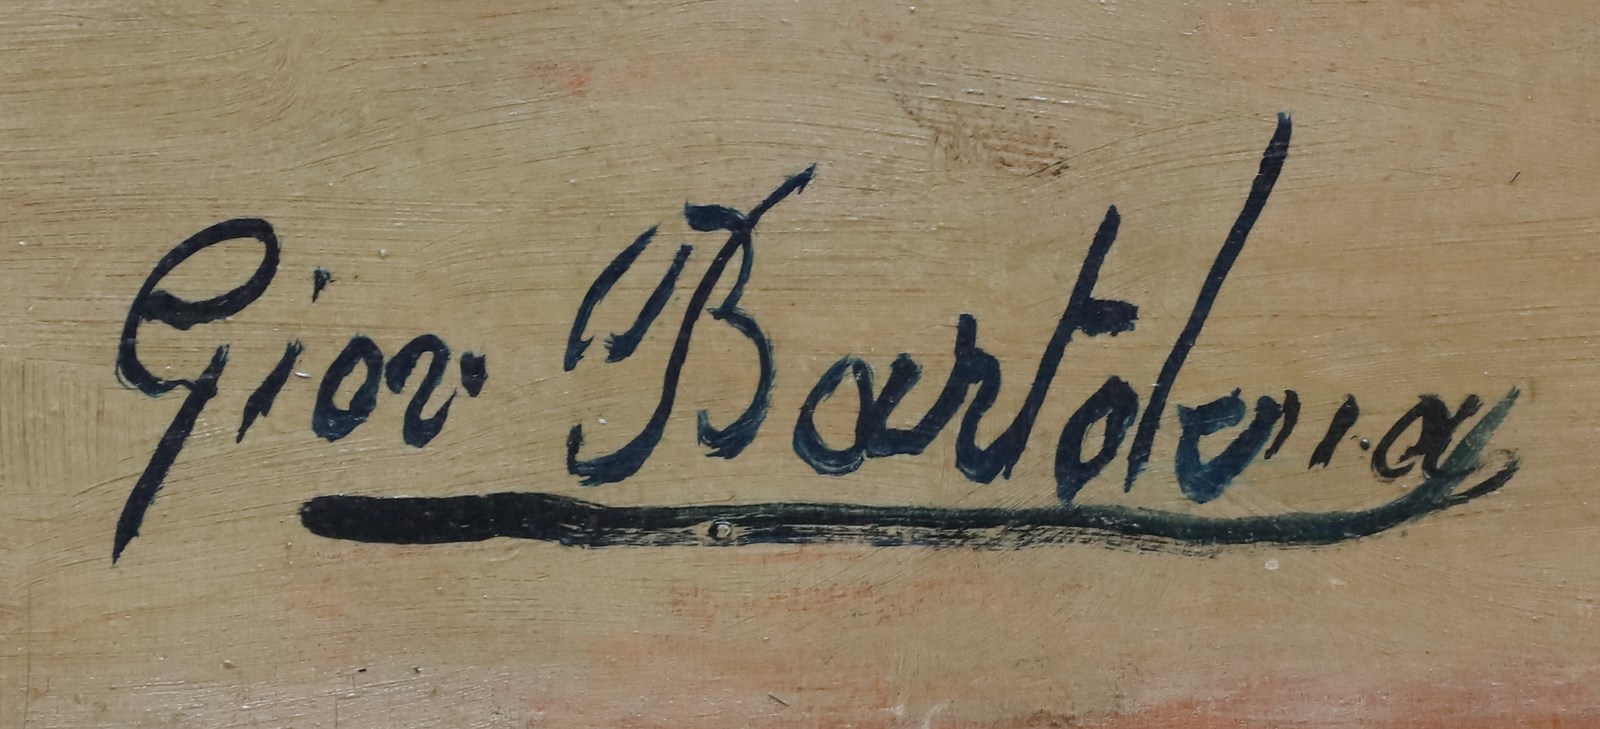 Giov. Bartolena